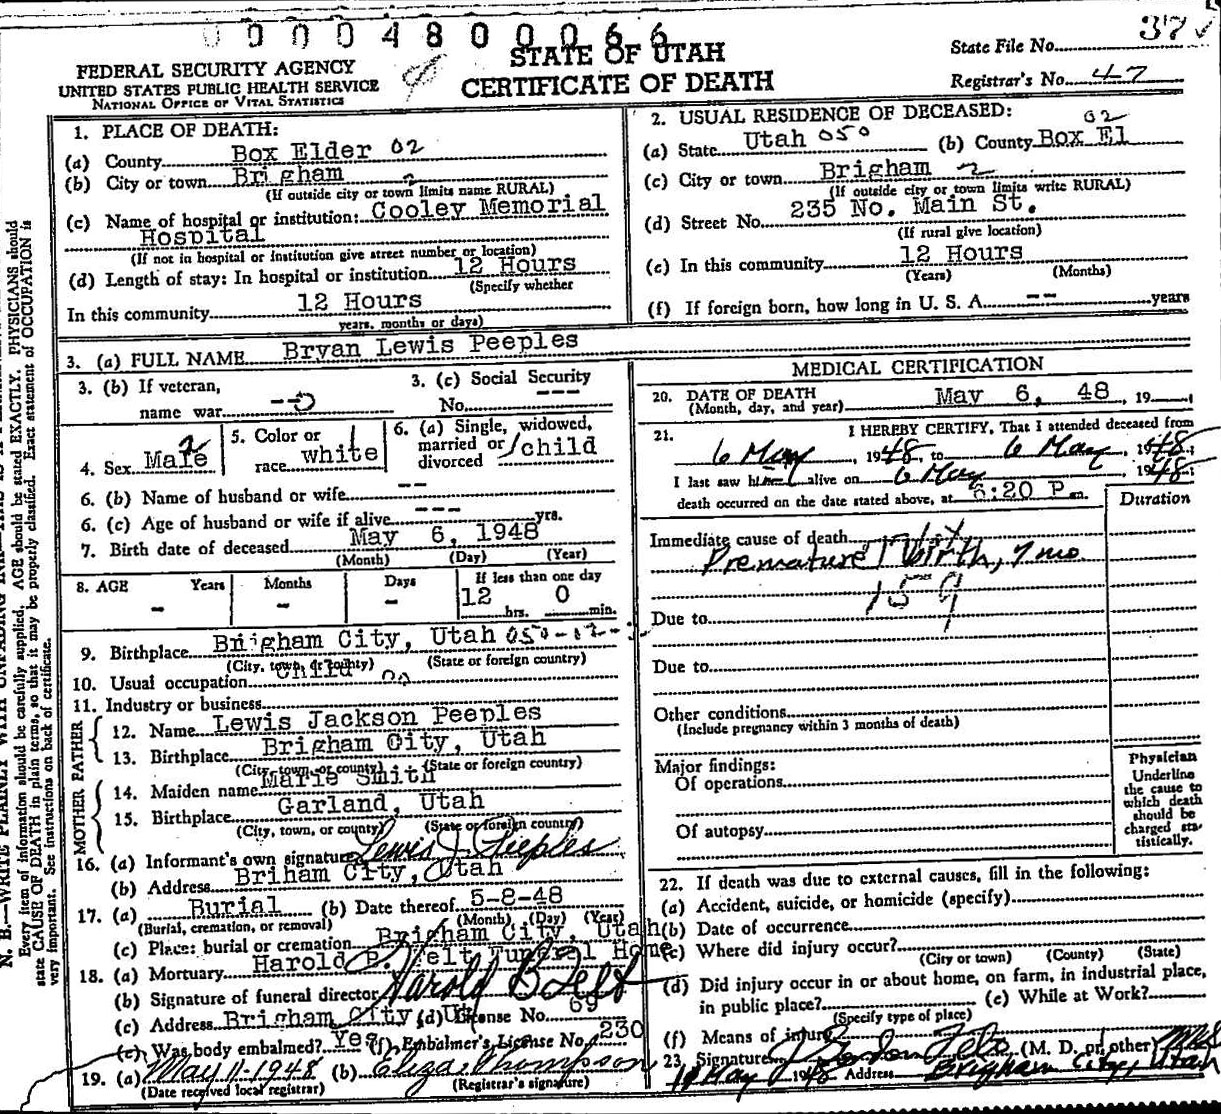 0 0 0 0 4 8 0 0 0 6 6
STATE OF UTAH
CERTIFICATE OF DEATH
FEDERAL SECURITY AGENCY
UNITED STATES PUBLIC HEALTH SERVICE
NATIONAL OFFICE OF VITAL STATISTICS
State File No. 37
Registrar's No. 47
1. PLACE OF DEATH:
(a) County Box Elder 02
(b) City or town Brigham 2
(If outside city or town limits name RURAL)
(c) Name of hospital or institution: Cooley Memorial
Hospital
(If not in hospital or institution give street number or location)
(d) Length of stay: In hospital or institution 12 Hours
(Specify whether
In this community 12 Hours
years, months or days)
2. USUAL RESIDENCE OF DECEASED:
02
(a) State Utah 050 (b) County Box El
(c) City or town Brigham 2
(If outside city or town limits write RURAL)
(d) Street No. 235 No. Main St.
(If rural give location)
(e) In this community 12 Hours
(Years) (Months)
(f) If foreign born, how long in U. S. A. -- years
3. (a) FULL NAME Bryan Lewis Peeples
3. (b) If veteran,
name war --
3. (c) Social Security
No. ---
4. Sex Male 2
5. Color or
race white 1
6. (a) Single, widowed,
married or
divorced child
6. (b) Name of husband or wife --
6. (c) Age of husband or wife if alive --- yrs.
7. Birth date of deceased May 6, 1948
(Month) (Day) (Year)
8. AGE Years Months Days If less than one day
- - - 12 hrs. 0 min.
9. Birthplace Brigham City, Utah 050-02-
(City, town, or county) (State or foreign country)
10. Usual occupation Child
11. Industry or business
FATHER
12. Name Lewis Jackson Peeples
13. Birthplace Brigham City, Utah
(City, town, or county) (State or foreign country)
MOTHER
14. Maiden name Marie Smith
15. Birthplace Garland, Utah
(City, town, or county) (State or foreign country
16. (a) Informant's own signature Lewis J. Peeples
(b) Address Briham City, Utah
17. (a) Burial (b) Date thereof 5-8-48
(Burial, cremation, or removal) (Month) (Day) (Year)
(c) Place: burial or cremation Brigham City, Utah
18. (a) Mortuary Harold B. Felt Funeral Home
(b) Signature of funeral director Harold B Felt
(c) Address Brigham City, Ut (d) License No. 69
(e) Was body embalmed? Yes (f) Embalmer's License No. 230
19. (a) May 11-1948 (b) Eliza Thompson
(Date received local registrar) (Registrar's signature)
MEDICAL CERTIFICATION
20. DATE OF DEATH
(Month, day, and year) May 6, 48, 19
21. I HEREBY CERTIFY, That I attended deceased from
6 May, 1948, to 6 May, 1948;
I last saw him alive on 6 May 1948;
death occurred on the date stated above, at 6:20 P m.
Duration
Immediate cause of death
Premature Birth, 7 mo
159
Due to
Due to
Other conditions
(Include pregnancy within 3 months of death)
Major findings:
Of operations
Of autopsy
Physician
Underline
the cause to
which death
should be
charged sta-
tistically.
22. If death was due to external causes, fill in the following:
(a) Accident, suicide, or homicide (specify)
(b) Date of occurrence
(c) Where did injury occur?
(City or town) (County) (State)
(d) Did injury occur in or about home, on farm, in industrial place,
in public place? (e) While at Work?
(Specify type of place)
(f) Means of injury
23. Signature (M. D. or other)
May 1948 Address Brigham City, Utah
N. B.—WRITE PLAINLY WITH UNFADING INK
Every item of information should be carefully supplied. AGE should be stated EXACTLY. PHYSICIANS should
state CAUSE OF DEATH in plain terms, so that it may be properly classified. Exact statement of OCCUPATION is
very important. See instructions on back of certificate.